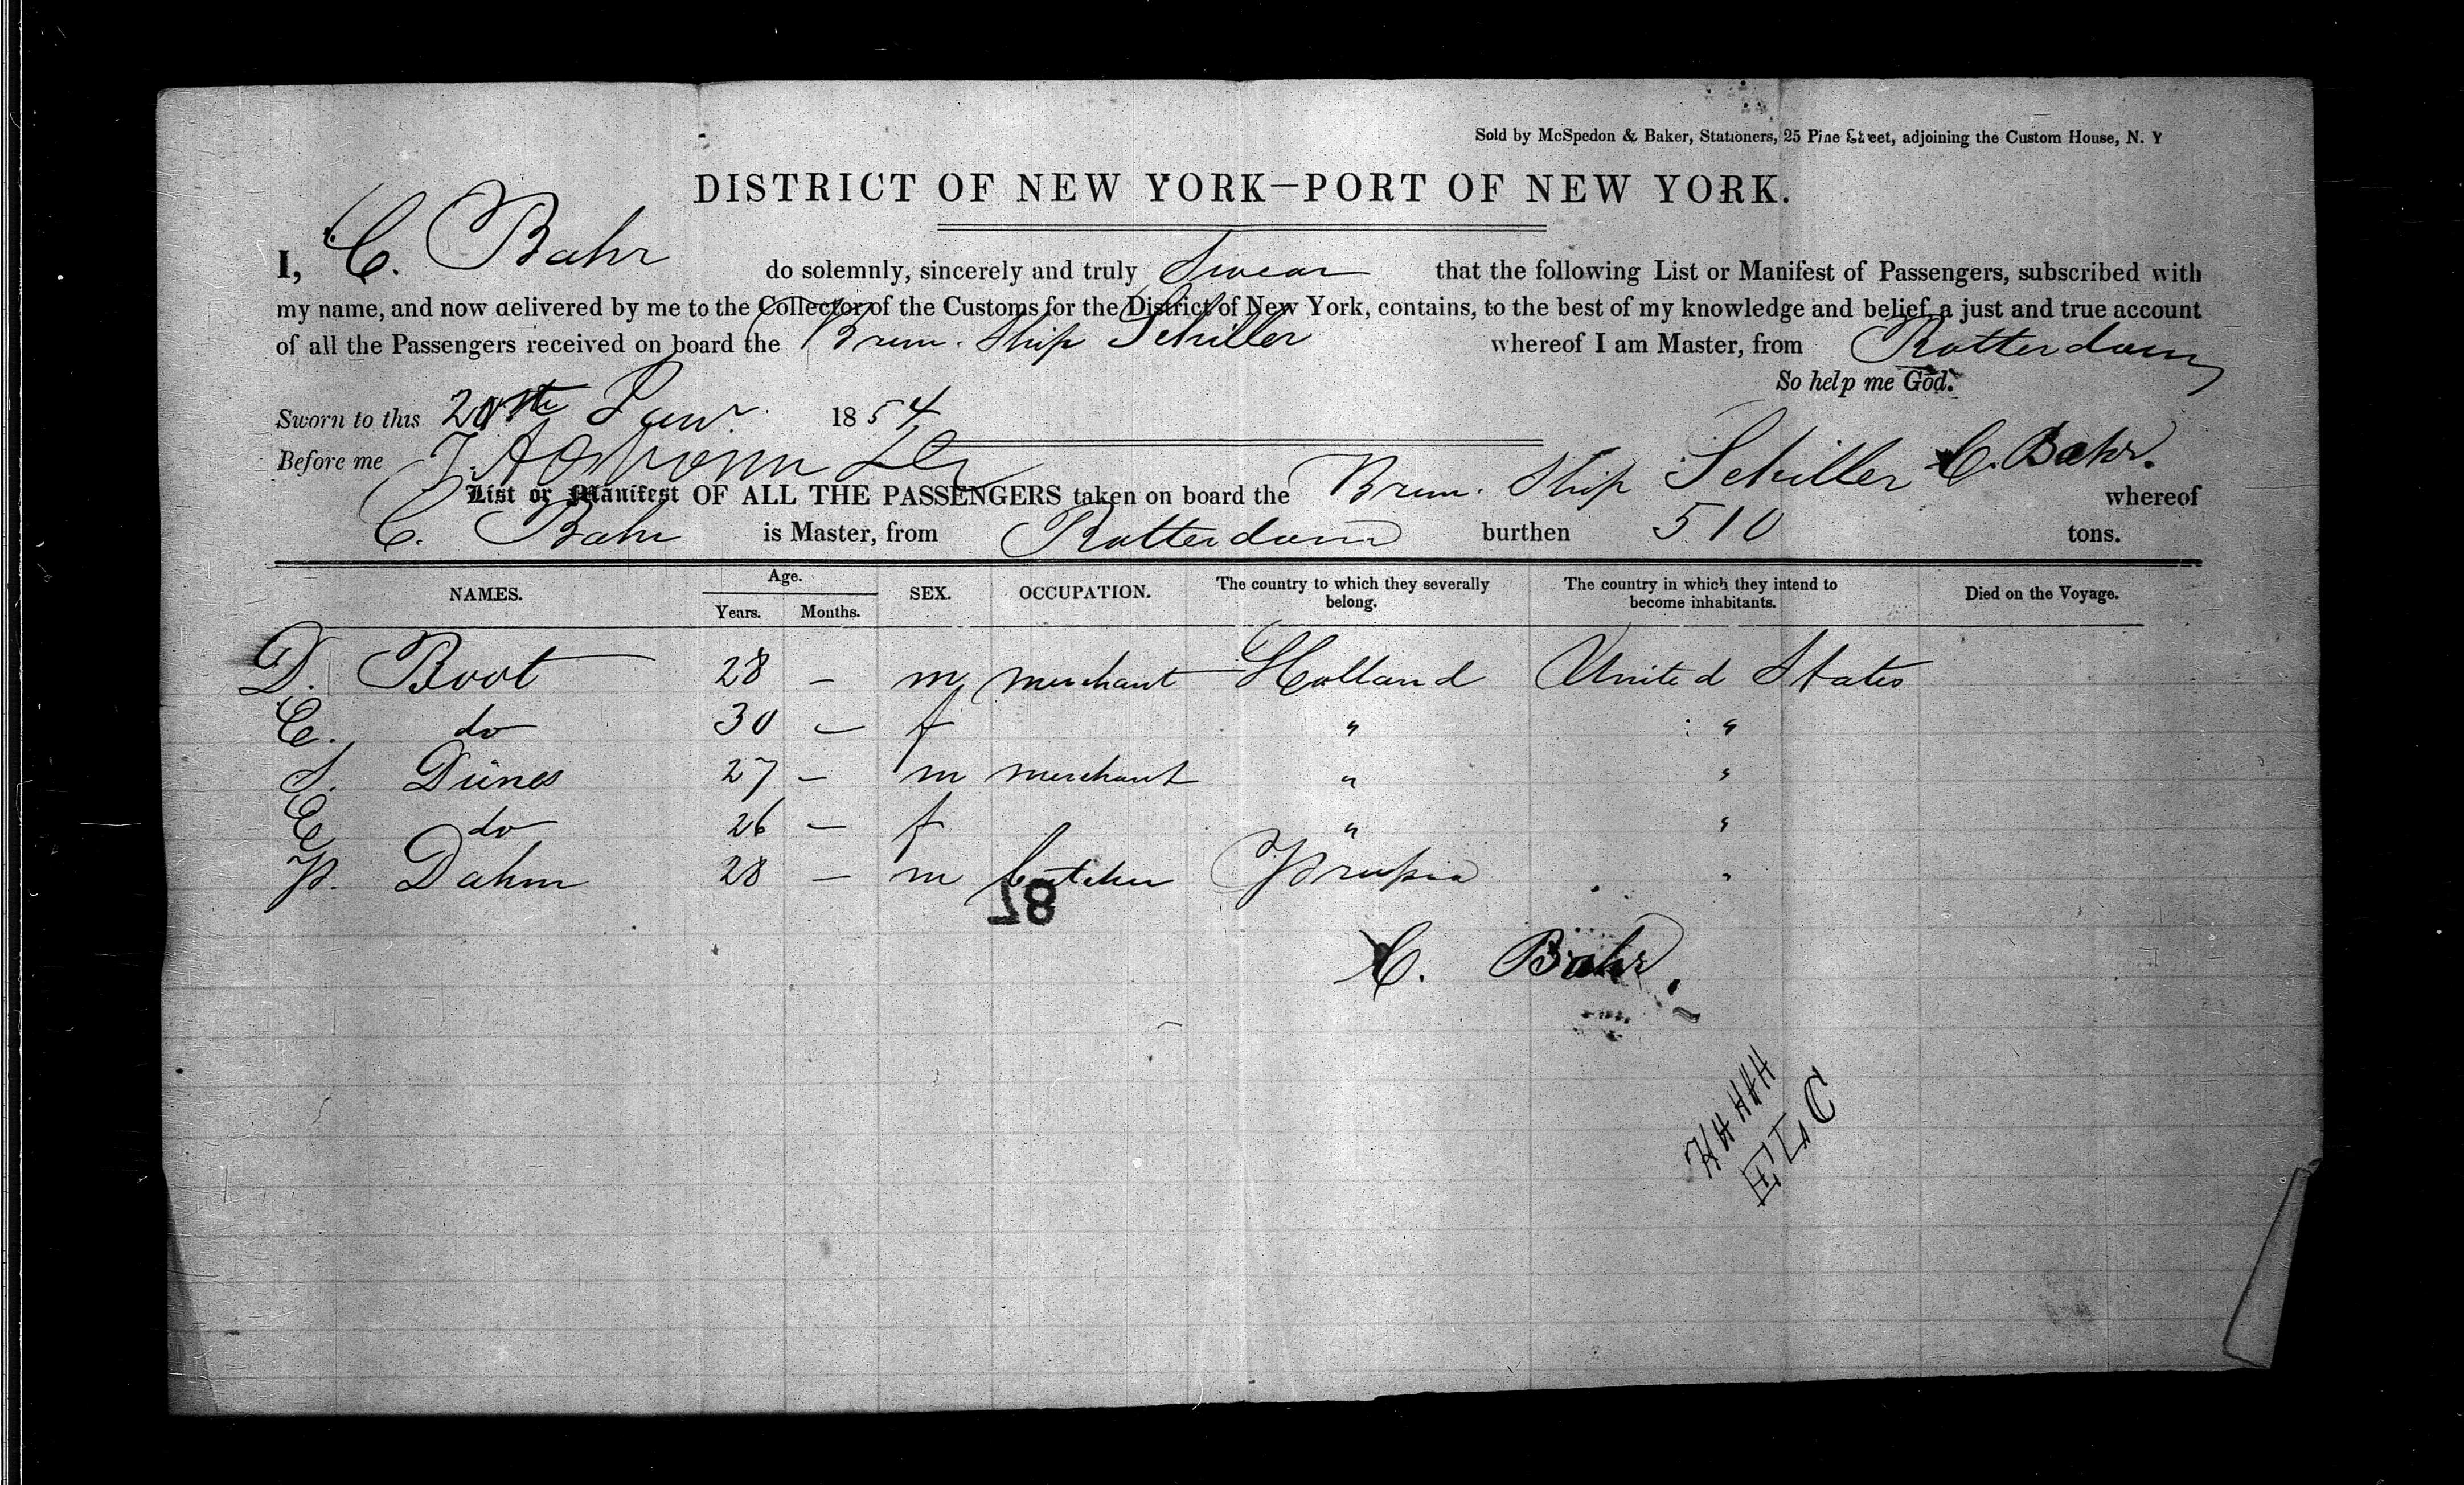 Sold by McSpedon & Baker, Stationers, 25 Pine Street, adjoining the Custom House, N. Y
DISTRICT OF NEW YORK—PORT OF NEW YORK.
I, C. Bahr do solemnly, sincerely and truly Swear that the following List or Manifest of Passengers, subscribed with
my name, and now delivered by me to the Collector of the Customs for the District of New York, contains, to the best of my knowledge and belief, a just and true account
of all the Passengers received on board the Brem. Ship Schiller whereof I am Master, from Rotterdam
So help me God.
Sworn to this Jan 1854
C. Bahr.
Before me
List or Manifest OF ALL THE PASSENGERS taken on board the Brem. Ship Schiller whereof
C. Bahr is Master, from Rotterdam burthen 510 tons.
NAMES. Age. Years. Months. SEX. OCCUPATION. The country to which they severally belong. The country in which they intend to become inhabitants. Died on the Voyage.
D. Boot 28 — m merchant Holland United States
C. do 30 — f " "
S. Dünes 27 — m merchant " "
E do 26 — f " "
P. Dahm 28 — m butcher Prussia "
87
C. Bahr.